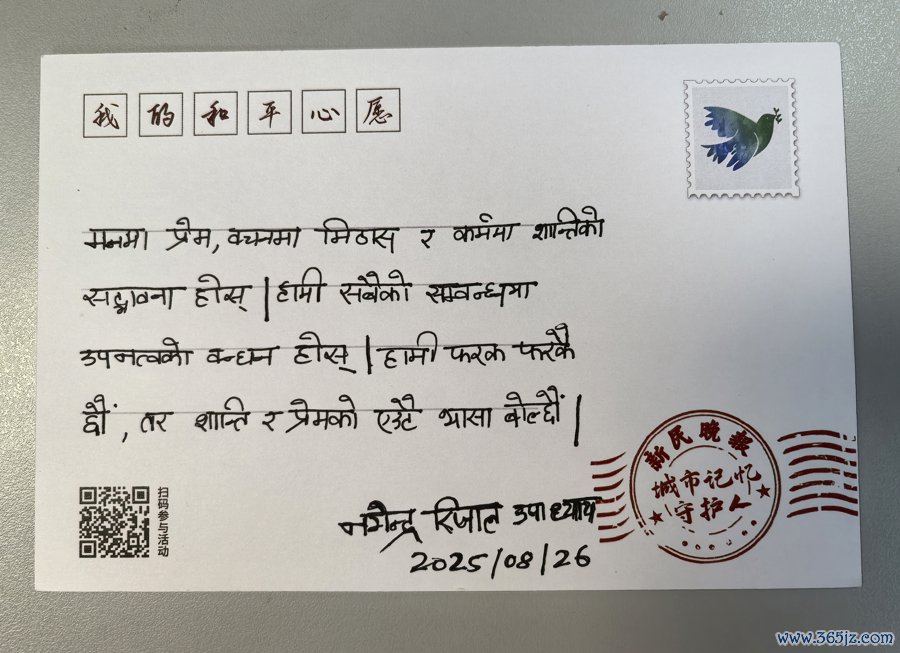 我的和平心愿
मनमा प्रेम, वचनमा मिठास र कर्ममा शान्तिको
सद्भावना होस् | हामी सबैको सम्वन्धमा
उपनत्वको वन्धन होस् | हामी फरक फरकै
छौं, तर शान्ति र प्रेमको एउटै भासा बोल्छौं |
नगेन्द्र रिजाल उपाध्याय
2025/08/26
扫码参与活动
新民晚报
城市记忆
守护人
www.365jz.com